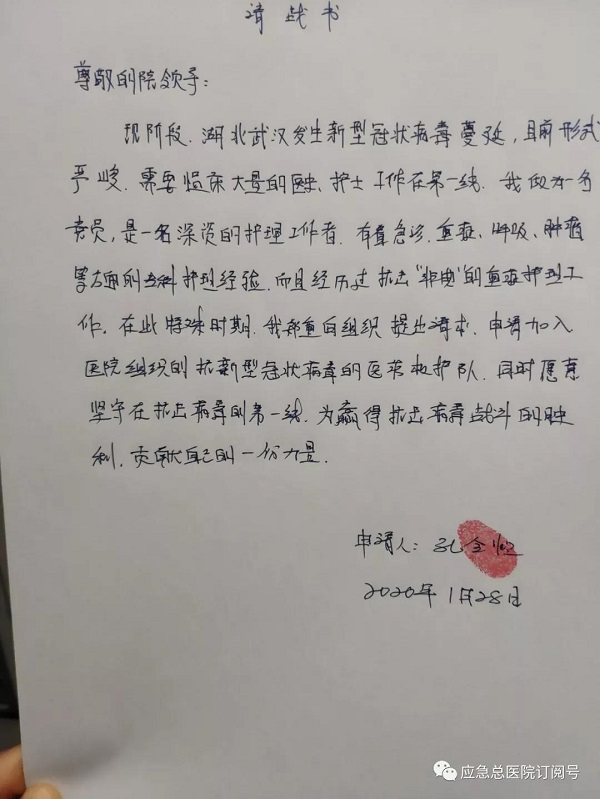 请战书
尊敬的院领导：
现阶段，湖北武汉发生新型冠状病毒蔓延，目前形式
严峻，需要临床大量的医生、护士工作在第一线。我做为一名
党员，是一名深资的护理工作者，有着急诊、重症、呼吸、肿瘤
等方面的专科护理经验，而且经历过抗击“非典”的重症护理工
作。在此特殊时期，我郑重向组织提出请求，申请加入
医院组织的抗新型冠状病毒的医疗救护队，同时愿意
坚守在抗击病毒的第一线，为赢得抗击病毒战斗的胜
利，贡献自己的一份力量。
申请人：孔金
2020年1月28日
应急总医院订阅号